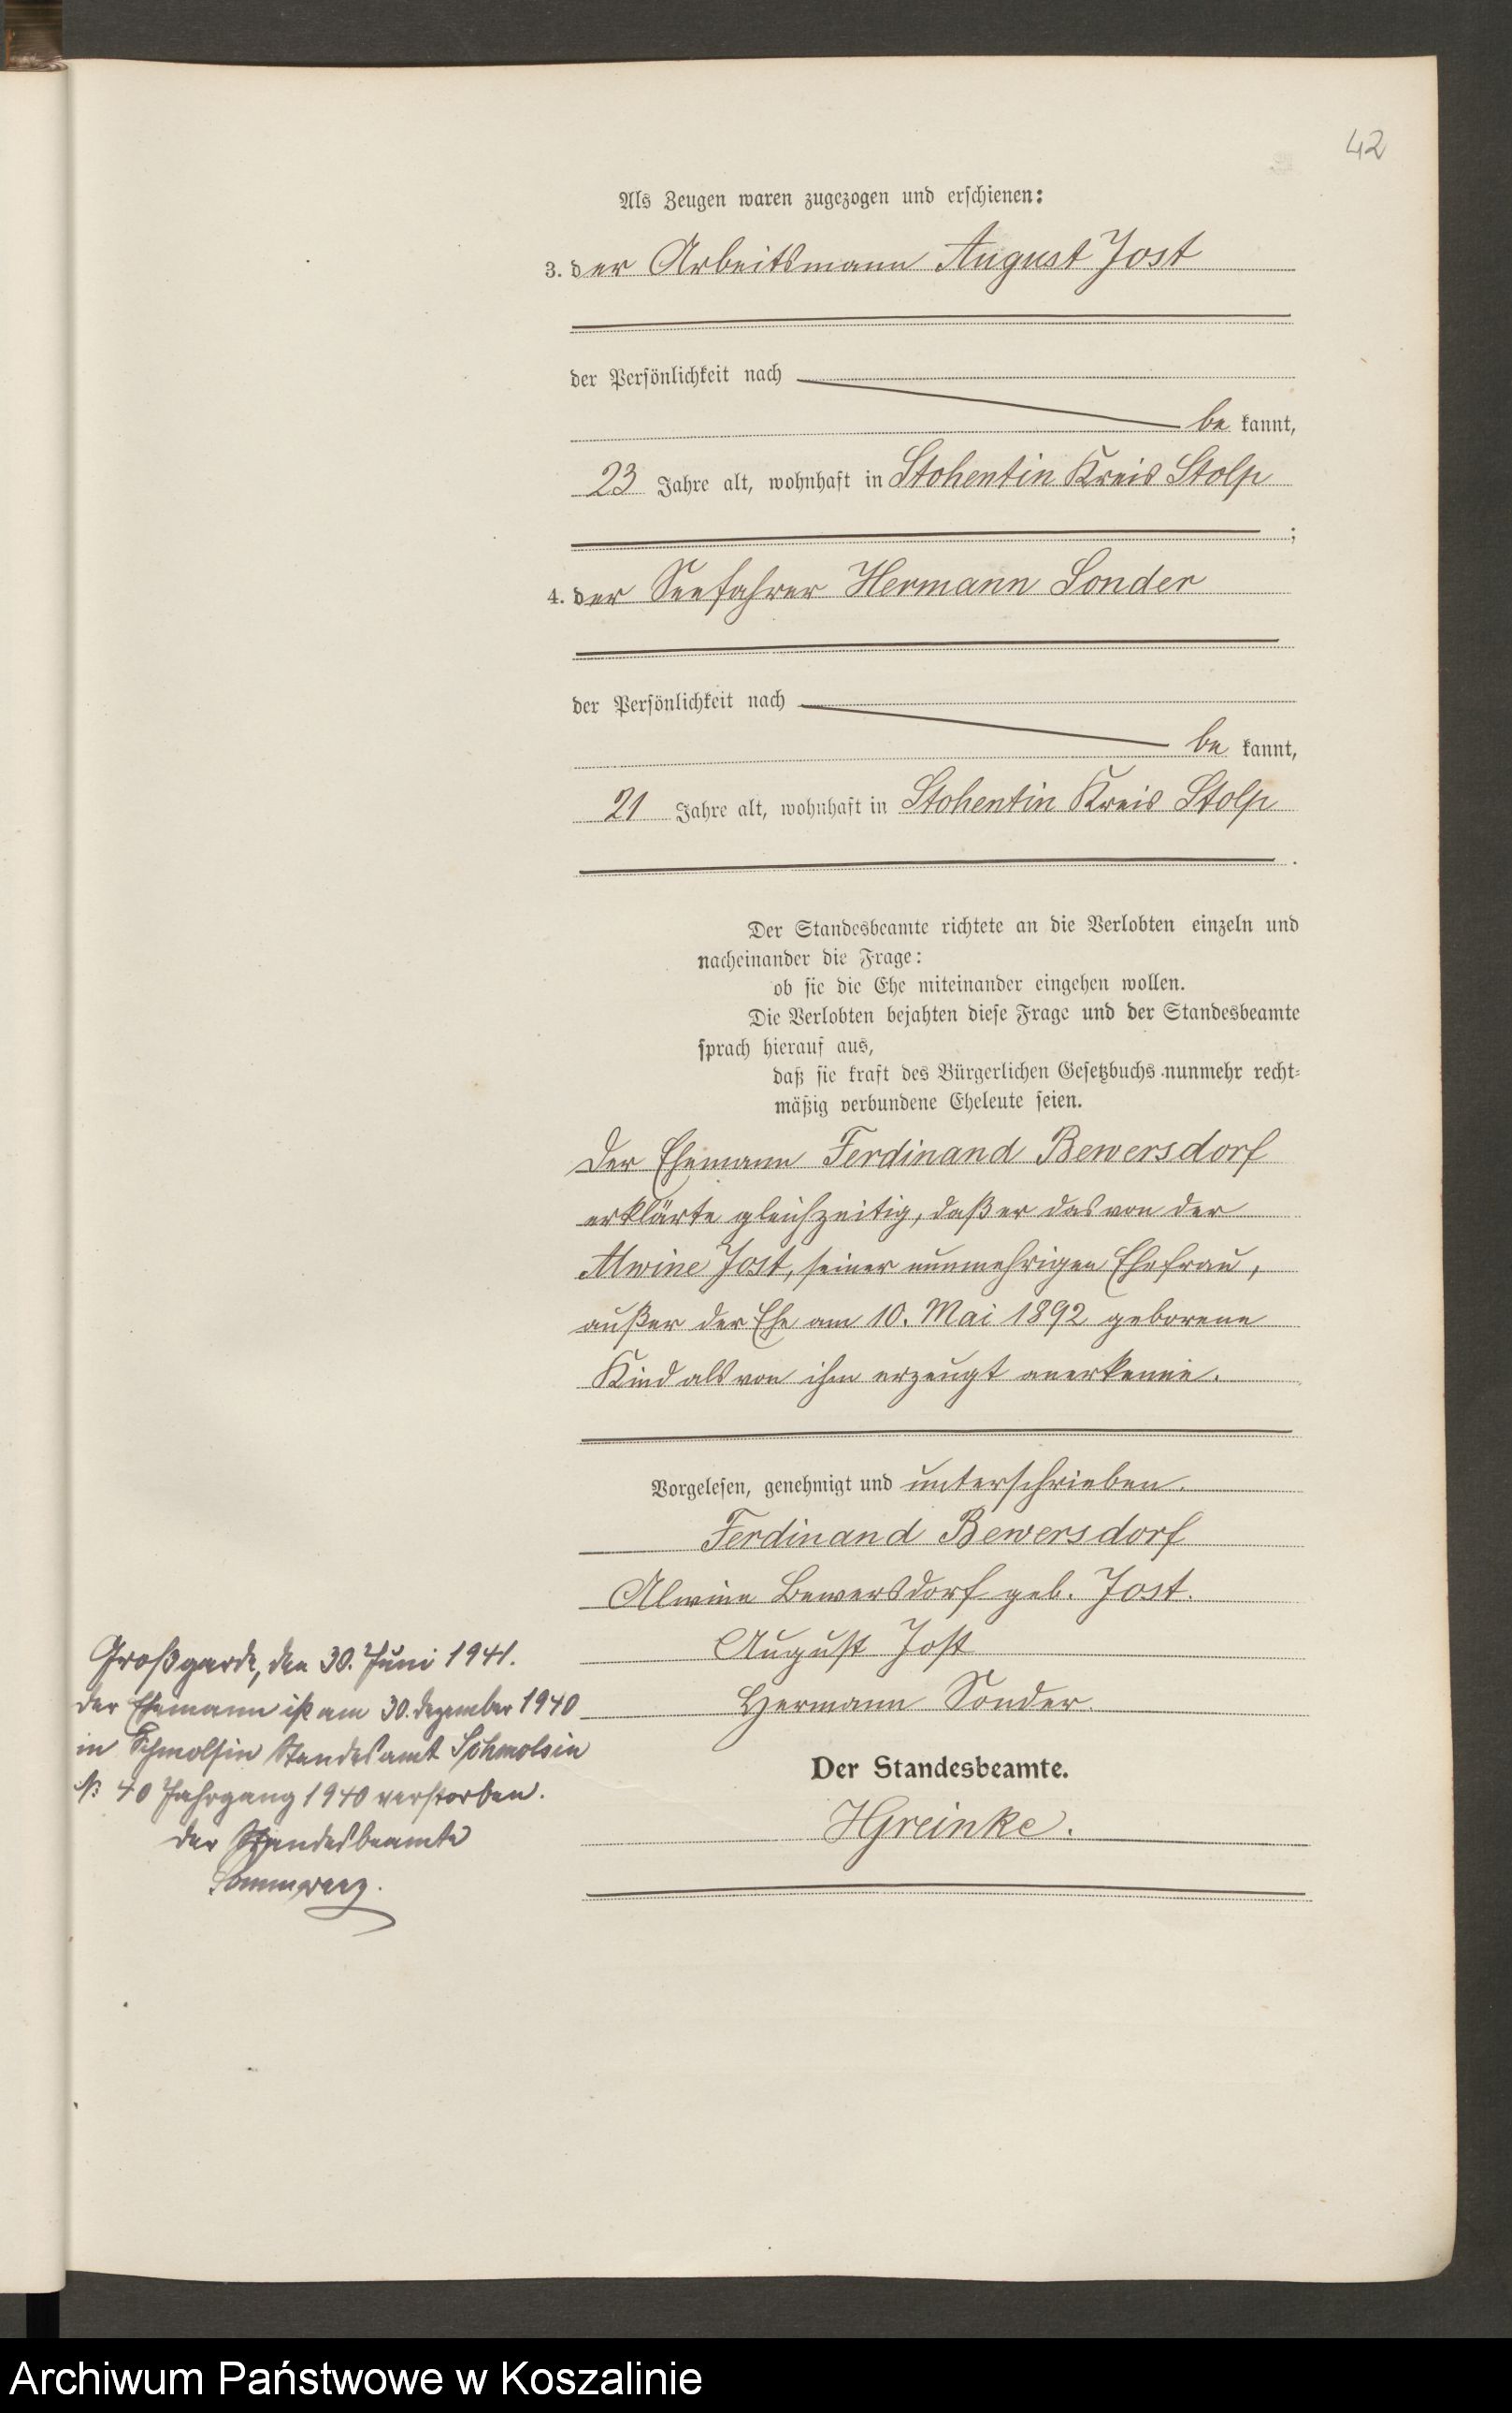 42
Als Zeugen waren zugezogen und erschienen:
3. der Arbeitsmann August Jost
der Persönlichkeit nach
be kannt,
23 Jahre alt, wohnhaft in Stohentin Kreis Stolp
;
4. der Seefahrer Hermann Sonder
der Persönlichkeit nach
be kannt,
21 Jahre alt, wohnhaft in Stohentin Kreis Stolp
.
Der Standesbeamte richtete an die Verlobten einzeln und
nacheinander die Frage:
ob sie die Ehe miteinander eingehen wollen.
Die Verlobten bejahten diese Frage und der Standesbeamte
sprach hierauf aus,
daß sie kraft des Bürgerlichen Gesetzbuchs nunmehr recht-
mäßig verbundene Eheleute seien.
Der Ehemann Ferdinand Bewersdorf
erklärte gleichzeitig, daß er das von der
Alwine Jost, seiner nunmehrigen Ehefrau,
außer der Ehe am 10. Mai 1892 geborene
Kind als von ihm erzeugt anerkenne.
Vorgelesen, genehmigt und unterschrieben.
Ferdinand Bewersdorf
Alwine Bewersdorf geb. Jost.
August Jost
Hermann Sonder.
Der Standesbeamte.
HGreinke.
Großgarde, den 30. Juni 1941.
Der Ehemann ist am 30. Dezember 1940
in Schmolsin Standesamt Schmolsin
№ 40 Jahrgang 1940 verstorben.
Der Standesbeamte
Archiwum Państwowe w Koszalinie